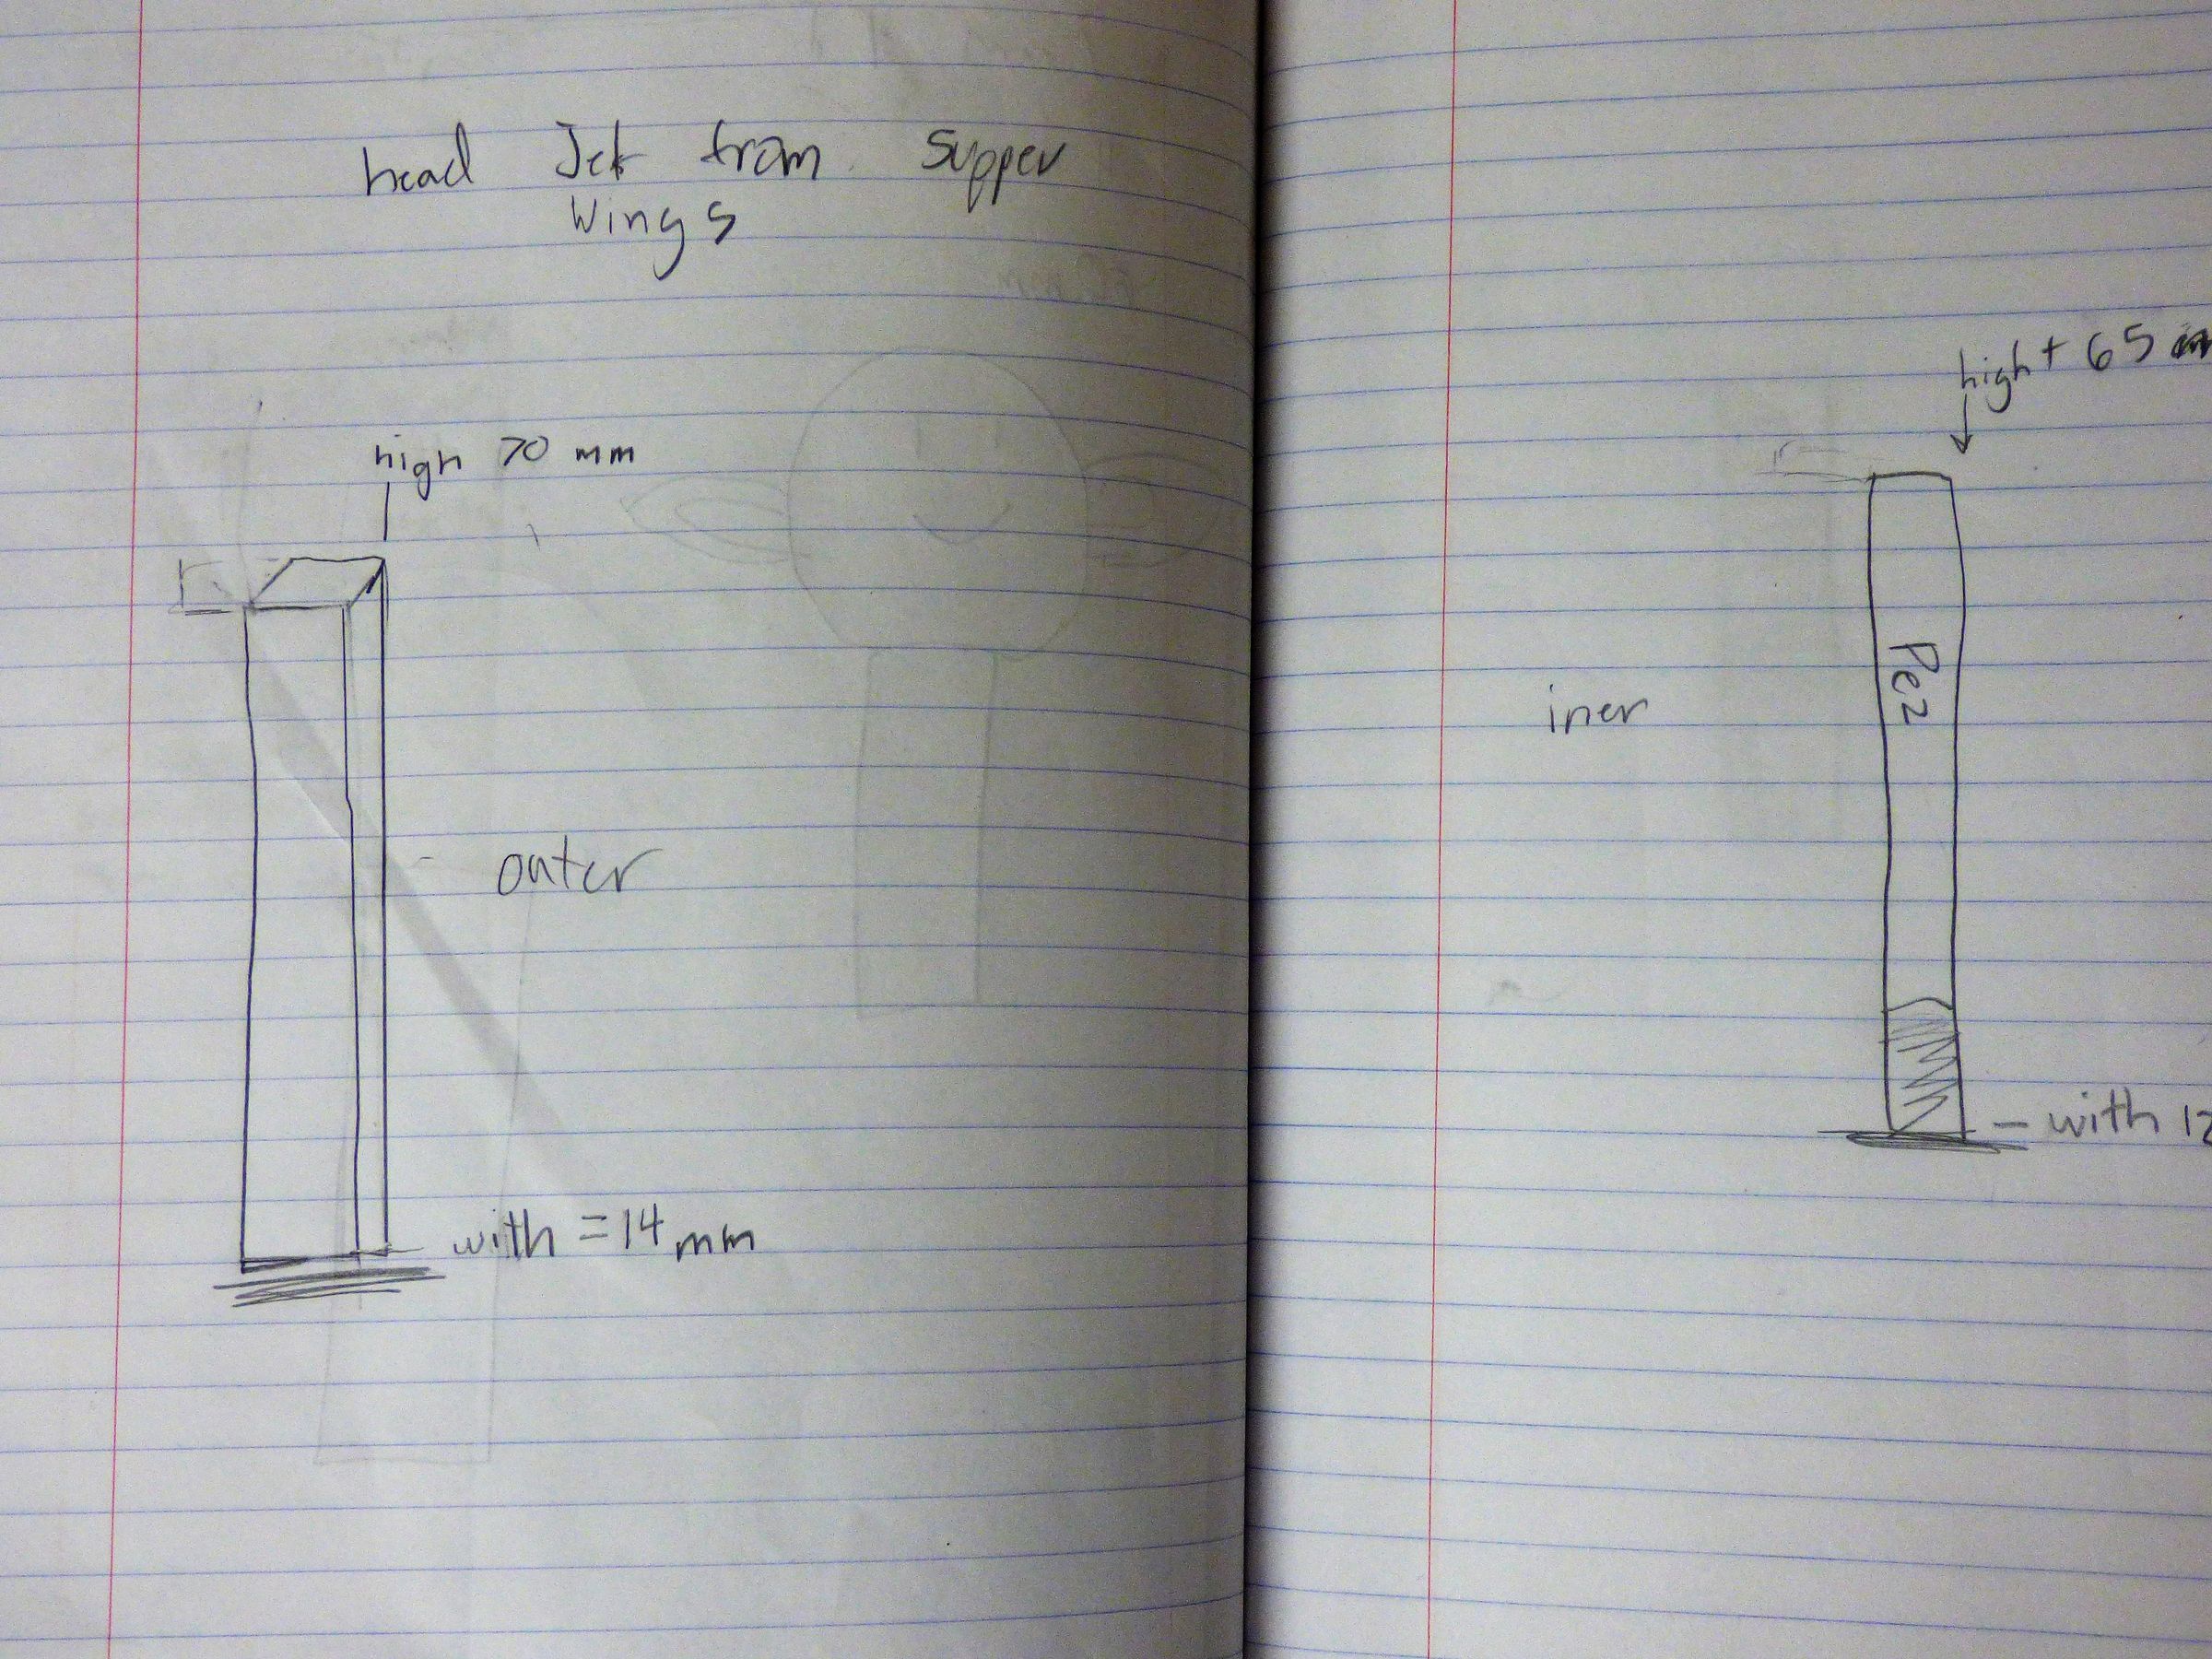 head Jet from Supper
Wings
high 70 mm
outer
with = 14 mm
hight 65 m
iner
Pez
– with 12